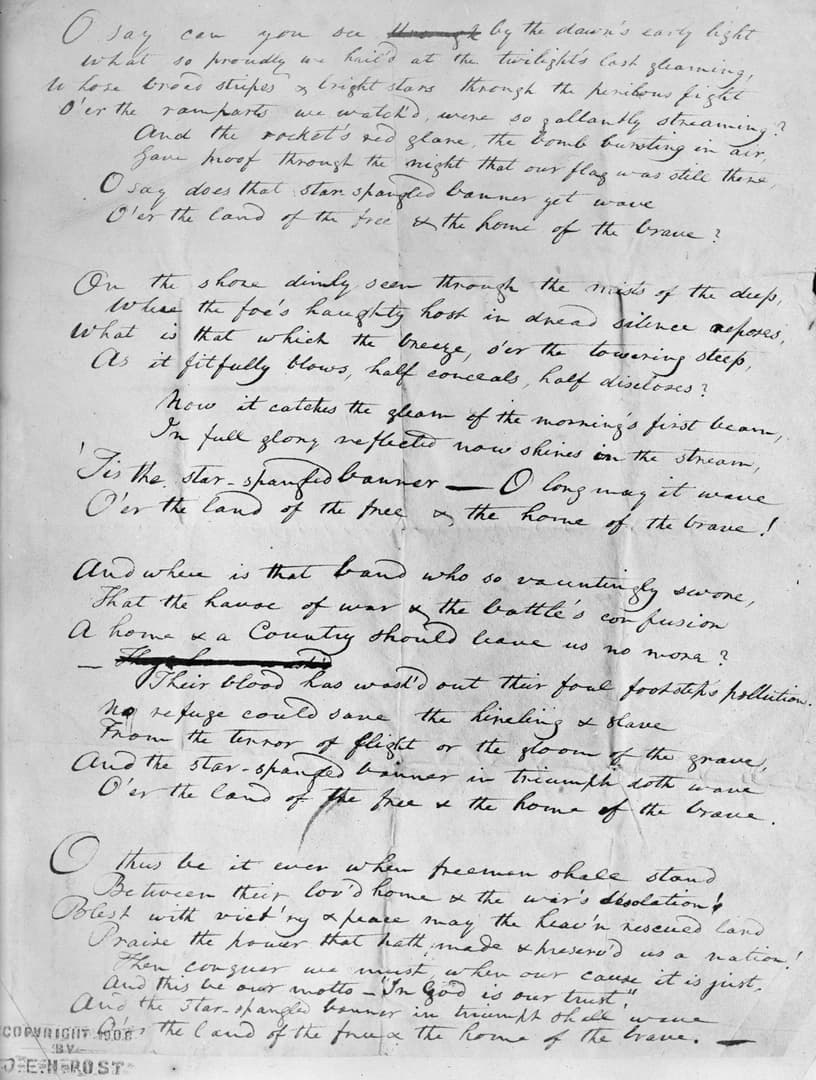 O say can you see through by the dawn's early light
What so proudly we hail'd at the twilight's last gleaming,
Whose broad stripes & bright stars through the perilous fight
O'er the ramparts we watch'd, were so gallantly streaming?
And the rocket's red glare, the bomb bursting in air,
Gave proof through the night that our flag was still there,
O say does that star-spangled banner yet wave
O'er the land of the free & the home of the brave?
On the shore dimly seen through the mists of the deep,
Where the foe's haughty host in dread silence reposes,
What is that which the breeze, o'er the towering steep,
As it fitfully blows, half conceals, half discloses?
Now it catches the gleam of the morning's first beam,
In full glory reflected now shines in the stream,
'Tis the star-spangled banner — O long may it wave
O'er the land of the free & the home of the brave!
And where is that band who so vauntingly swore,
That the havoc of war & the battle's confusion
A home & a Country should leave us no more?
—
Their blood has wash'd out their foul footstep's pollution.
No refuge could save the hireling & slave
From the terror of flight or the gloom of the grave,
And the star-spangled banner in triumph doth wave
O'er the land of the free & the home of the brave.
O thus be it ever when freemen shall stand
Between their lov'd home & the war's desolation!
Blest with vict'ry & peace may the heav'n rescued land
Praise the power that hath made & preserv'd us a nation!
Then conquer we must, when our cause it is just,
And this be our motto - "In God is our trust,"
And the star-spangled banner in triumph shall wave
O'er the land of the free & the home of the brave. —
COPYRIGHT 1908
BY